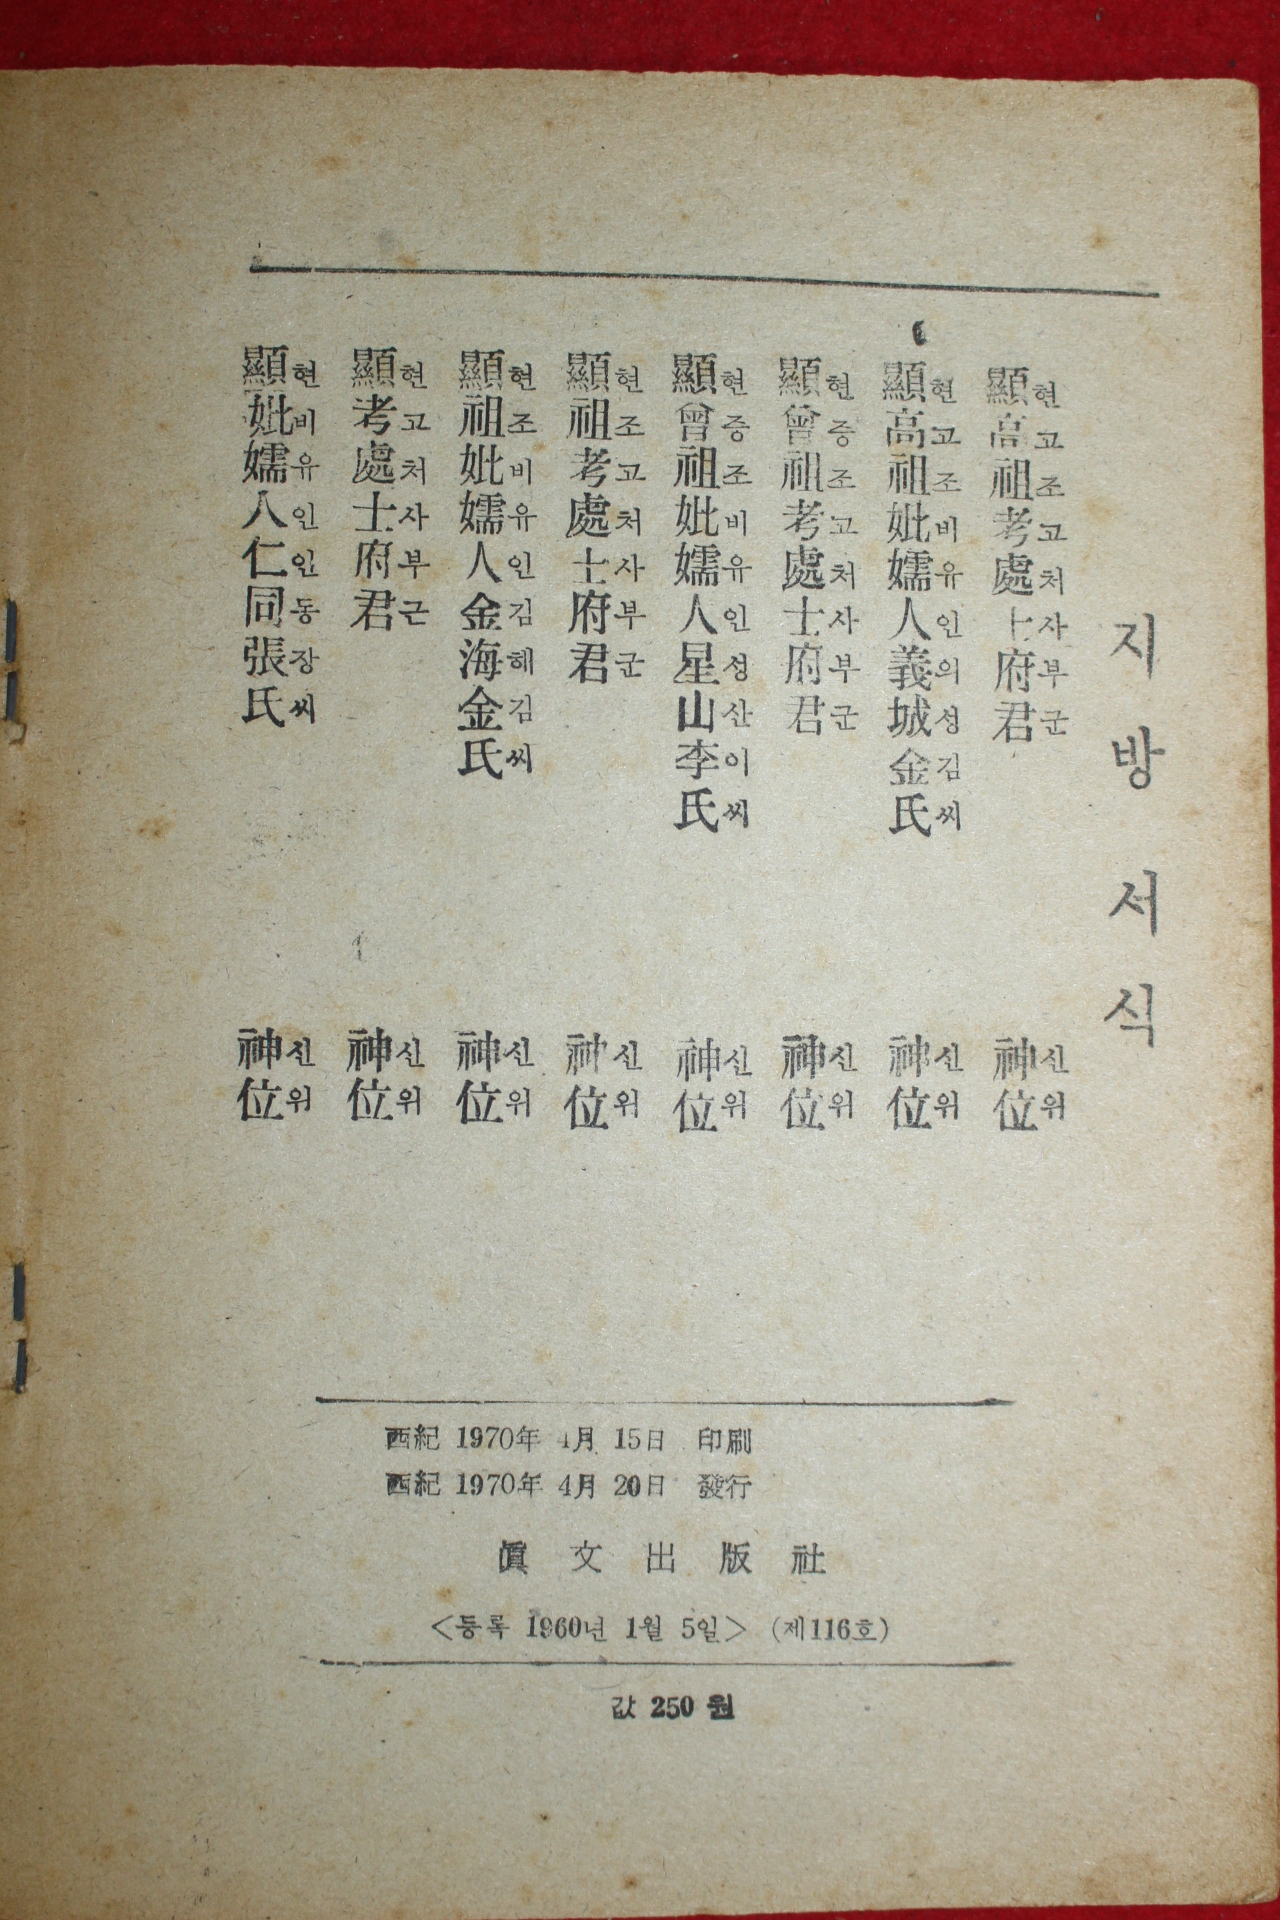 지방서식
顯高祖考處士府君 神位
현고조고처사부군 신위
顯高祖妣孺人義城金氏 神位
현고조비유인의성김씨 신위
顯曾祖考處士府君 神位
현증조고처사부군 신위
顯曾祖妣孺人星山李氏 神位
현증조비유인성산이씨 신위
顯祖考處士府君 神位
현조고처사부군 신위
顯祖妣孺人金海金氏 神位
현조비유인김해김씨 신위
顯考處士府君 神位
현고처사부근 신위
顯妣孺人仁同張氏 神位
현비유인인동장씨 신위
西紀 1970年 4月 15日 印刷
西紀 1970年 4月 20日 發行
眞文出版社
<등록 1960년 1월 5일> (제116호)
값 250 원